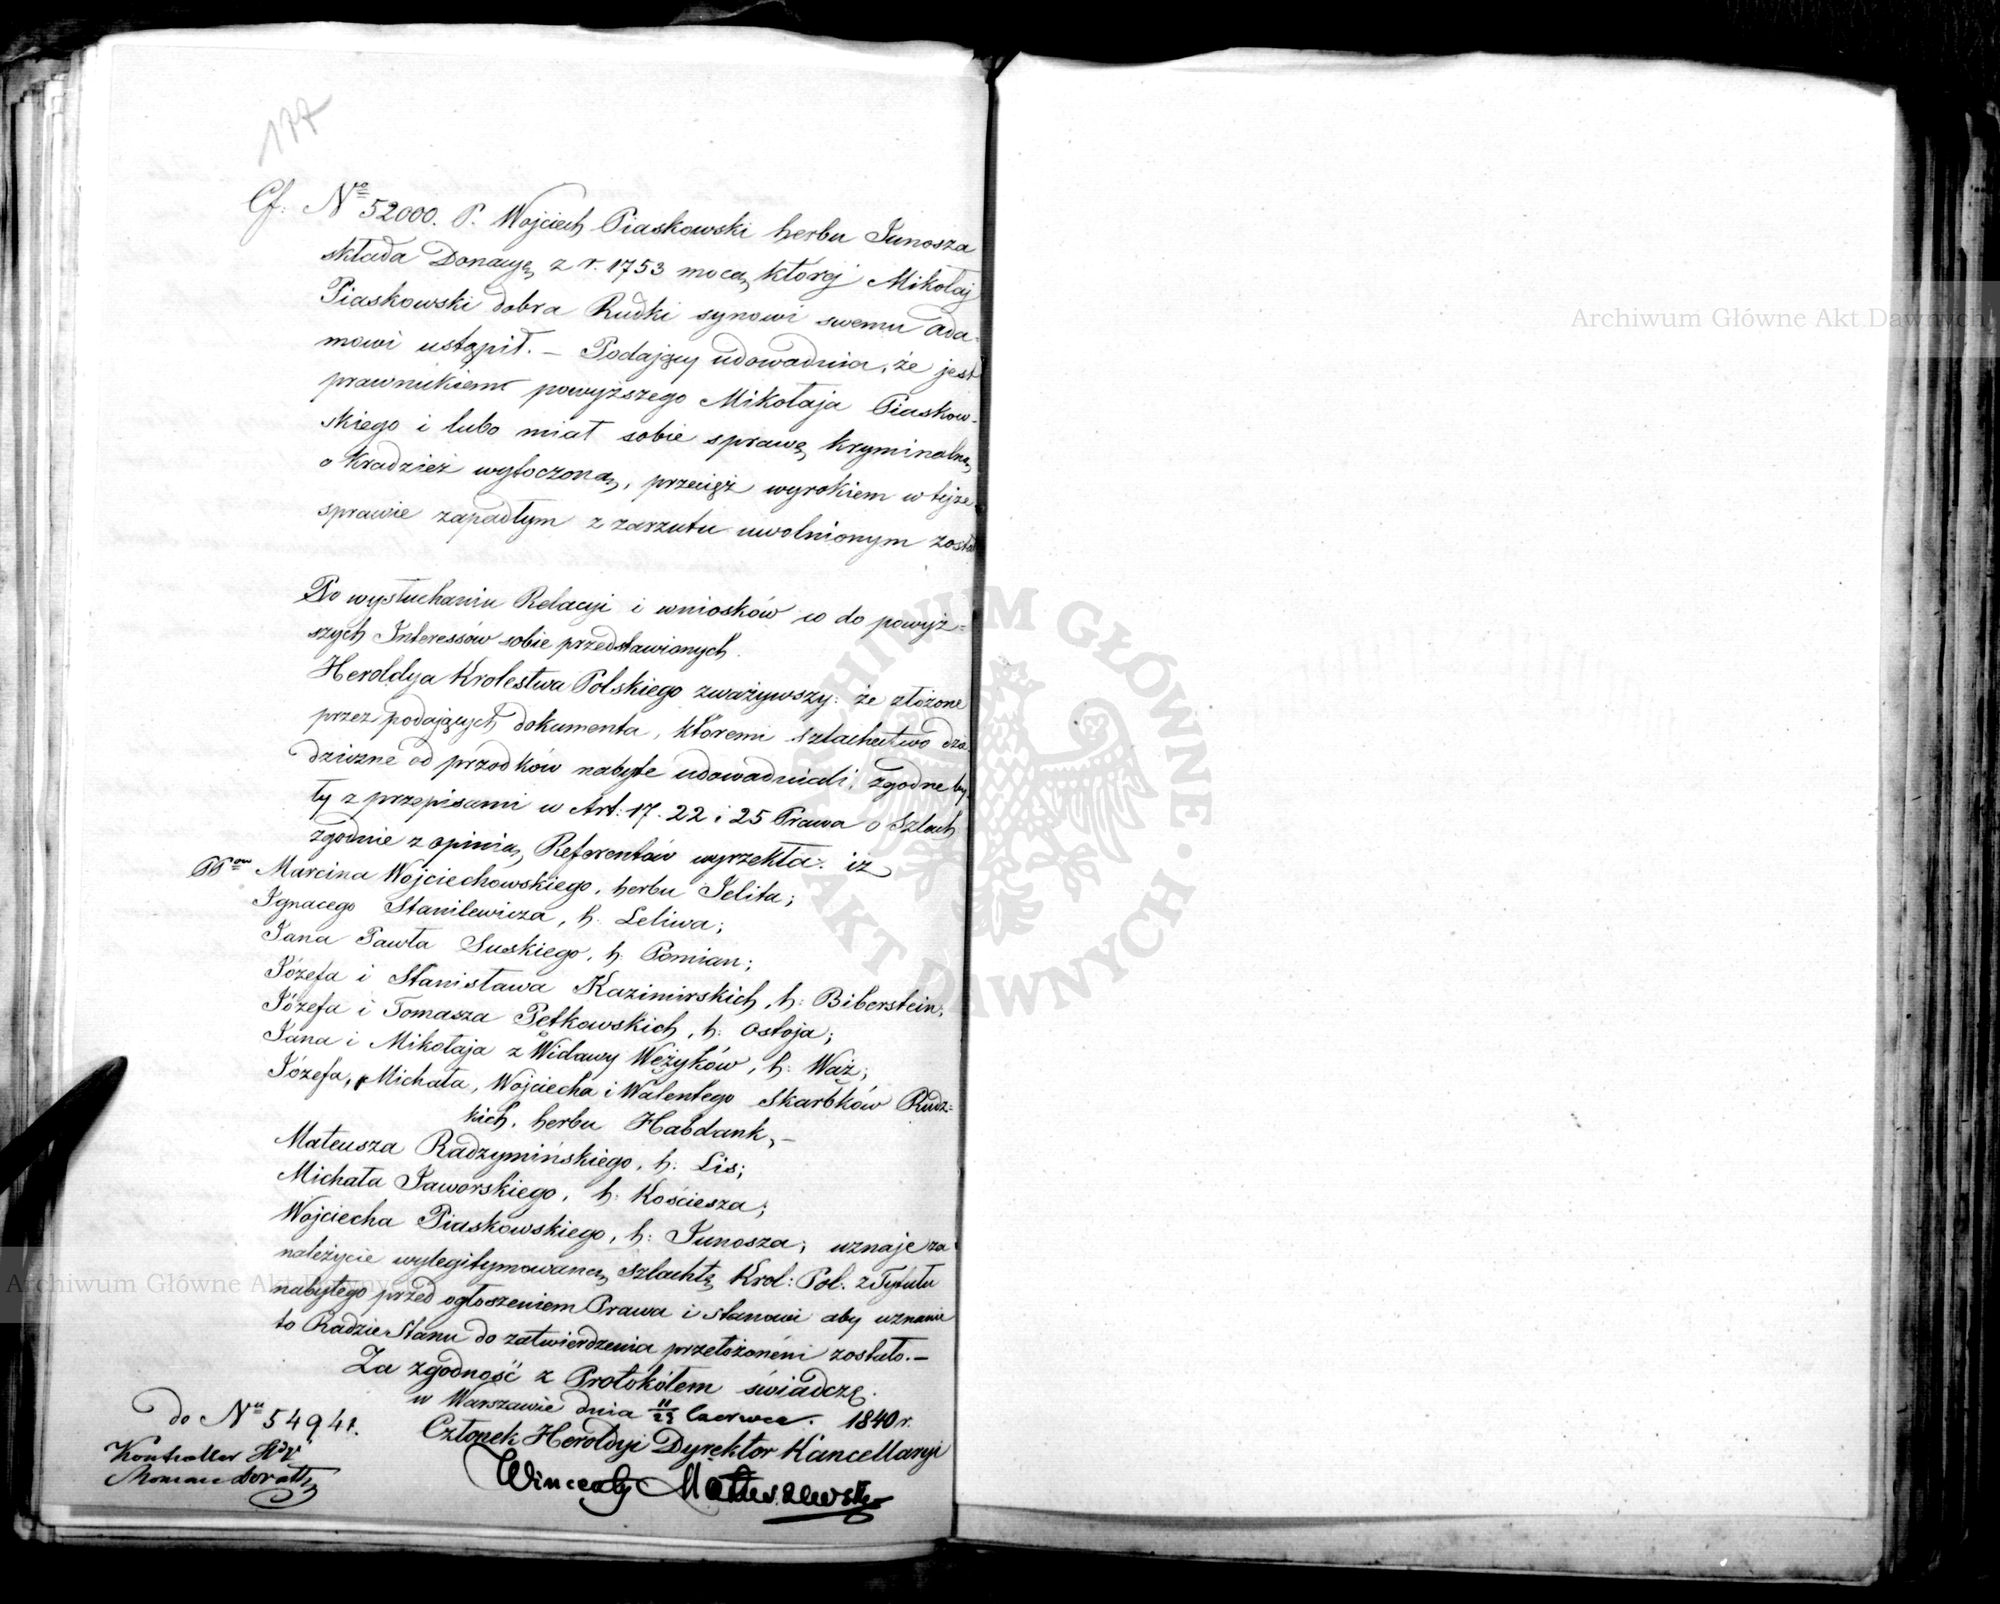 177
Cf: No 52000. P. Wojciech Piaskowski herbu Junosza
składa Donacyę z r. 1753 mocą której Mikołaj
Piaskowski dobra Rudki synowi swemu Ada-
mowi ustąpił. — Podający udowadnia, że jest
prawnukiem powyższego Mikołaja Piaskow-
skiego i lubo miał sobie sprawę kryminalną
o kradzież wytoczoną, przecięż wyrokiem w tejże
sprawie zapadłym z zarzutu uwolnionym został
Po wysłuchaniu Relacyi i wniosków co do powyż=
szych Interessów sobie przedstawionych.
Heroldya Krolestwa Polskiego zważywszy: że złożone
przez podających dokumenta, któremi szlachectwo dzie-
dziczne od przodków nabyte udowadniali, zgodne by-
ły z przepisami w Art: 17. 22 i 25 Prawa o Szlach
zgodnie z opinią Referentów wyrzekła: iż
PPow Marcina Wojciechowskiego, herbu Jelita;
Ignacego Stanilewicza, h. Leliwa;
Jana Pawła Suskiego, h. Pomian;
Józefa i Stanisława Kazimirskich, h: Biberstein;
Józefa i Tomasza Petkowskich, h: Ostoja;
Jana i Mikołaja z Widawy Wężyków, h: Wąż;
Józefa, Michała, Wojciecha i Walentego Skarbków Rudz=
kich, herbu Habdank, —
Mateusza Radzymińskiego, h: Lis;
Michała Jaworskiego, h: Kościesza;
Wojciecha Piaskowskiego, h: Junosza; uznaje za
należycie wylegitymowaną szlachtę Krol: Pol: z Tytułu
nabytego przed ogłoszeniem Prawa i stanowi aby uznanie
to Radzie Stanu do zatwierdzenia przełożonem zostało. —
Za zgodność z Protokółem świadczę.
w Warszawie dnia 11/23 Czerwca 1840 r.
do Nu 54941. Członek Heroldyi Dyrektor Kancellaryi
Kontroller
Wincenty Matuszewski
Archiwum Główne Akt Dawnych
Archiwum Główne Akt Dawnych
ARCHIWUM GŁÓWNE AKT DAWNYCH